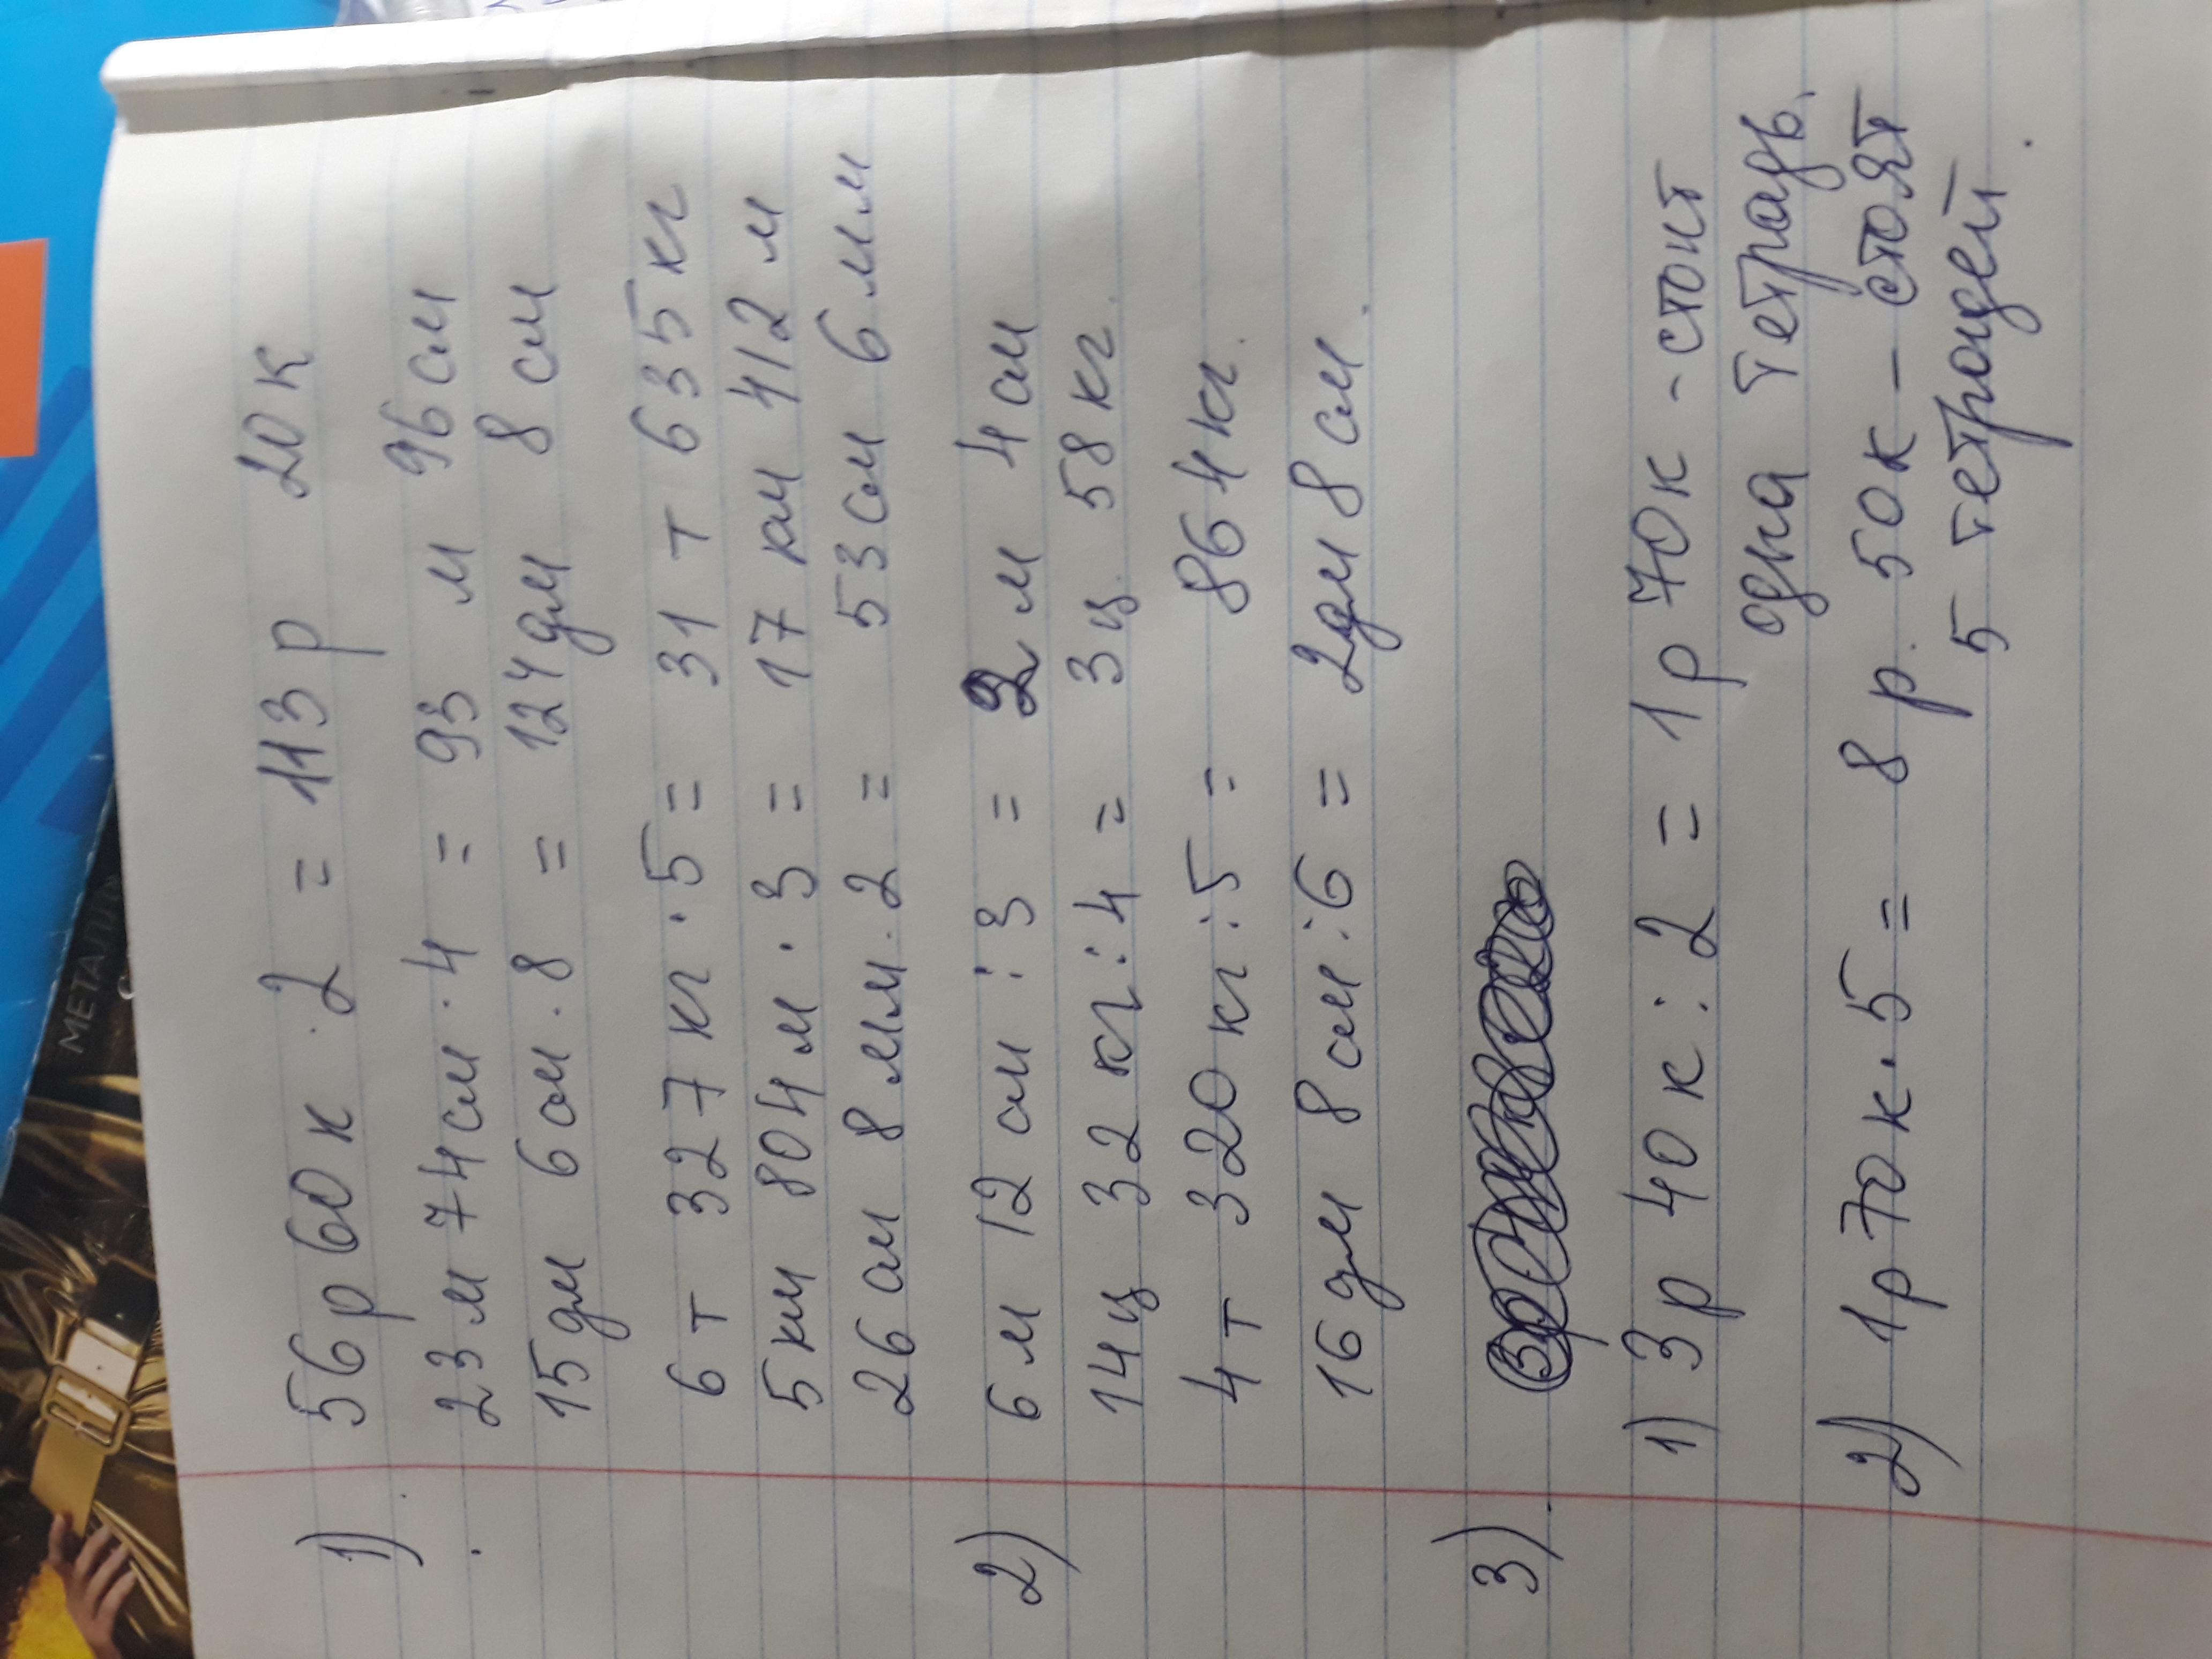 1) 56р 60к · 2 = 113р 20к
23м 74см · 4 = 93 м 96см
15дм 6см · 8 = 124дм 8 см
6 т 327кг · 5 = 31 т 635кг
5км 804м · 3 = 17 км 412 м
26см 8 мм · 2 = 53см 6 мм
2) 6 м 12 см : 3 = 2 м 4 см
14ц 32 кг : 4 = 3 ц 58 кг.
4 т 320кг : 5 = 864кг.
16 дм 8 см : 6 = 2дм 8 см.
3)
1) 3р 40 к : 2 = 1р 70к - стоит
одна тетрадь.
2) 1р 70к · 5 = 8 р. 50к - стоят
5 тетрадей.
МЕТАЛЛ